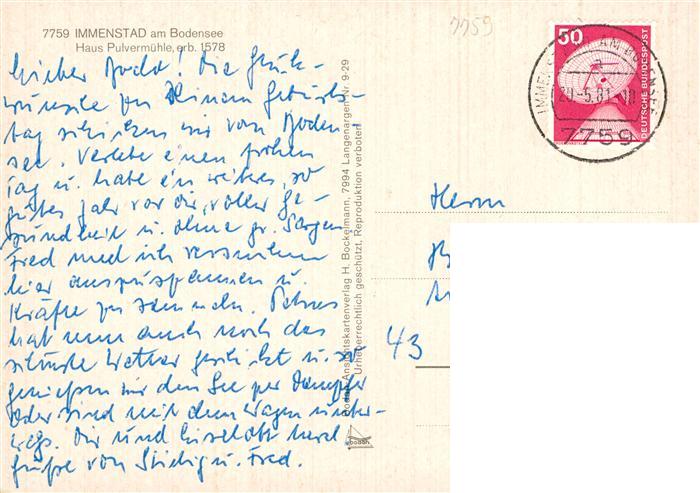 7759 IMMENSTAD am Bodensee
Haus Pulvermühle, erb. 1578
Lieber Bodo! Die Glück-
wünsche zu Deinem Geburts-
tag schicken wir vom Boden-
see. Verlebe einen frohen
Tag u. habe ein weiteres, so
gutes Jahr vor dir, voller Ge-
sundheit u. ohne gr. Sorgen.
Fred und ich versuchen
hier auszuspannen u.
Kräfte zu sammeln. Petrus
hat nun auch noch das
schönste Wetter geschickt u. so
genießen wir den See per Dampfer
oder sind mit dem Wagen unter-
wegs. Dir und herzl
Grüße von u. Fred.
Bodan-Ansichtskartenverlag H. Bockelmann, 7994 Langenargen Nr. 9-29
Urheberrechtlich geschützt, Reproduktion verboten
bodan
7759
50
DEUTSCHE BUNDESPOST
7759
Herrn
43